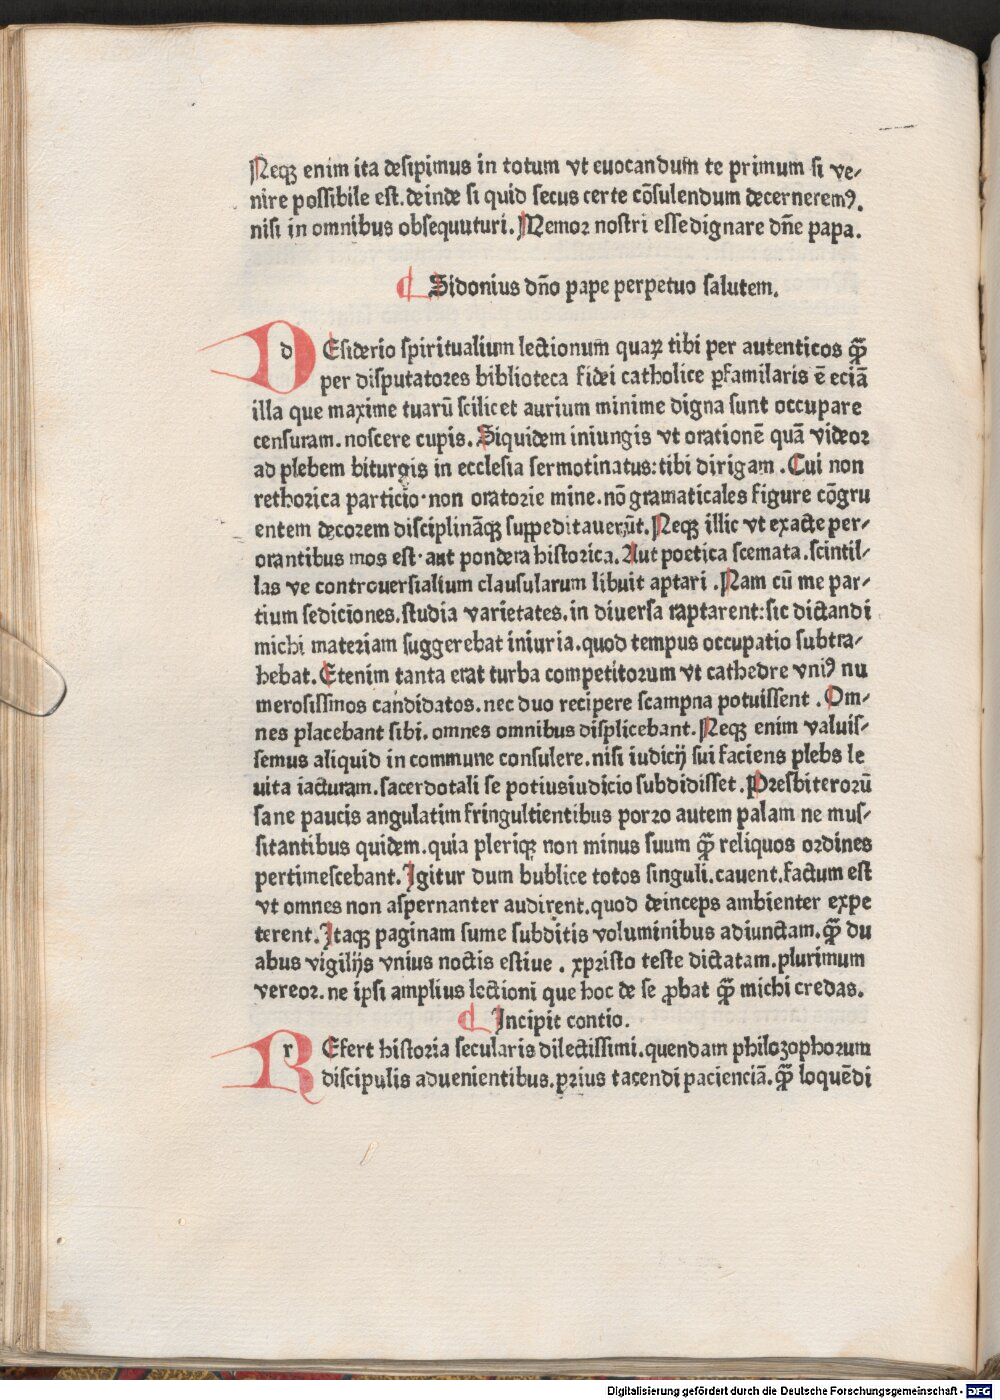 Neqꝫ enim ita desipimus in totum vt euocandum te primum si ve-
nire possibile est. deinde si quid secus certe cõsulendum decerneremꝰ.
nisi in omnibus obsequuturi. Memor nostri esse dignare dñe papa.
⸿ Sidonius dño pape perpetuo salutem.
D d Esiderio spiritualium lectionum quaꝝ tibi per autenticos qͣ̃
per disputatores biblioteca fidei catholice ꝑfamilaris ẽ eciã
illa que maxime tuarũ scilicet aurium minime digna sunt occupare
censuram. noscere cupis. Siquidem iniungis vt orationẽ quã videor
ad plebem biturgis in ecclesia sermotinatus: tibi dirigam. Cui non
rethorica particio· non oratorie mine. nõ gramaticales figure cõgru
entem decorem disciplinãqꝫ suppeditauerũt. Neqꝫ illic vt exacte per-
orantibus mos est· aut pondera historica. Aut poetica scemata. scintil-
las ve controuersialium clausularum libuit aptari. Nam cũ me par-
tium sediciones. studia varietates. in diuersa raptarent: sic dictandi
michi materiam suggerebat iniuria. quod tempus occupatio subtra-
hebat. Etenim tanta erat turba competitorum vt cathedre vniꝰ nu
merosissimos candidatos. nec duo recipere scampna potuissent. Om-
nes placebant sibi. omnes omnibus displicebant. Neqꝫ enim valuis-
semus aliquid in commune consulere. nisi iudicij sui faciens plebs le
uita iacturam. sacerdotali se potiusiudicio subdidisset. Presbiterorũ
sane paucis angulatim fringultientibus porro autem palam ne mus-
sitantibus quidem. quia pleriqꝫ non minus suum qͣ̃ reliquos ordines
pertimescebant. Igitur dum bublice totos singuli. cauent. factum est
vt omnes non aspernanter audirent. quod deinceps ambienter expe
terent. Itaqꝫ paginam sume subditis voluminibus adiunctam. qͣ̃ du
abus vigilijs vnius noctis estiue. xpristo teste dictatam. plurimum
vereor. ne ipsi amplius lectioni que hoc de se ꝓbat qͣ̃ michi credas.
⸿ Incipit contio.
R r Efert historia secularis dilectissimi. quendam philozophorum
discipulis aduenientibus. prius tacendi pacienciã. qͣ̃ loquẽdi
Digitalisierung gefördert durch die Deutsche Forschungsgemeinschaft - DFG